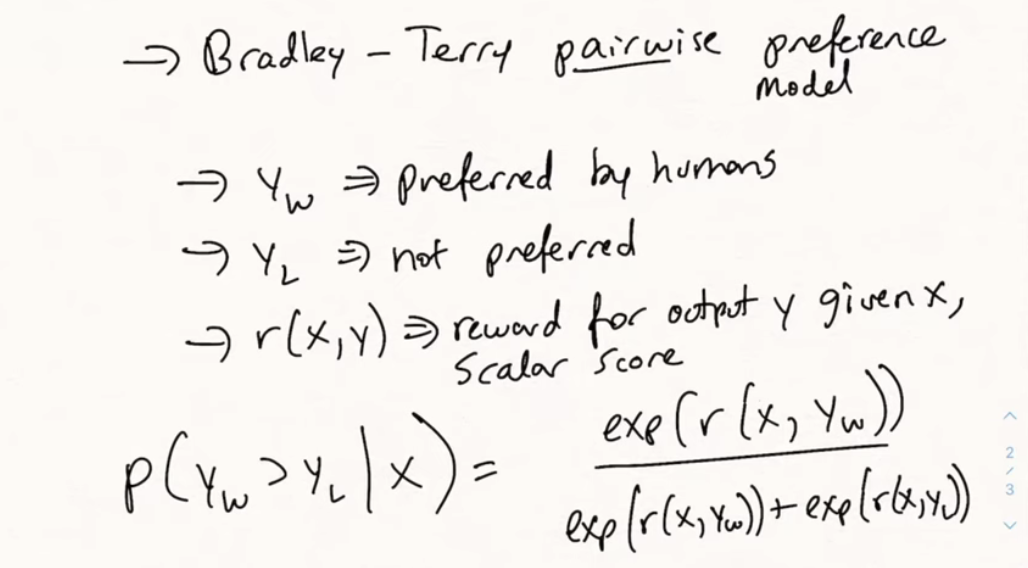 → Bradley - Terry pairwise preference
model
→ Y_w ⇒ preferred by humans
→ Y_L ⇒ not preferred
→ r(x,y) ⇒ reward for output y given x,
scalar score
exp(r(x, Y_w))
p(Y_w > Y_L | x) =
exp(r(x, Y_w)) + exp(r(x, Y_L))
2
/
3